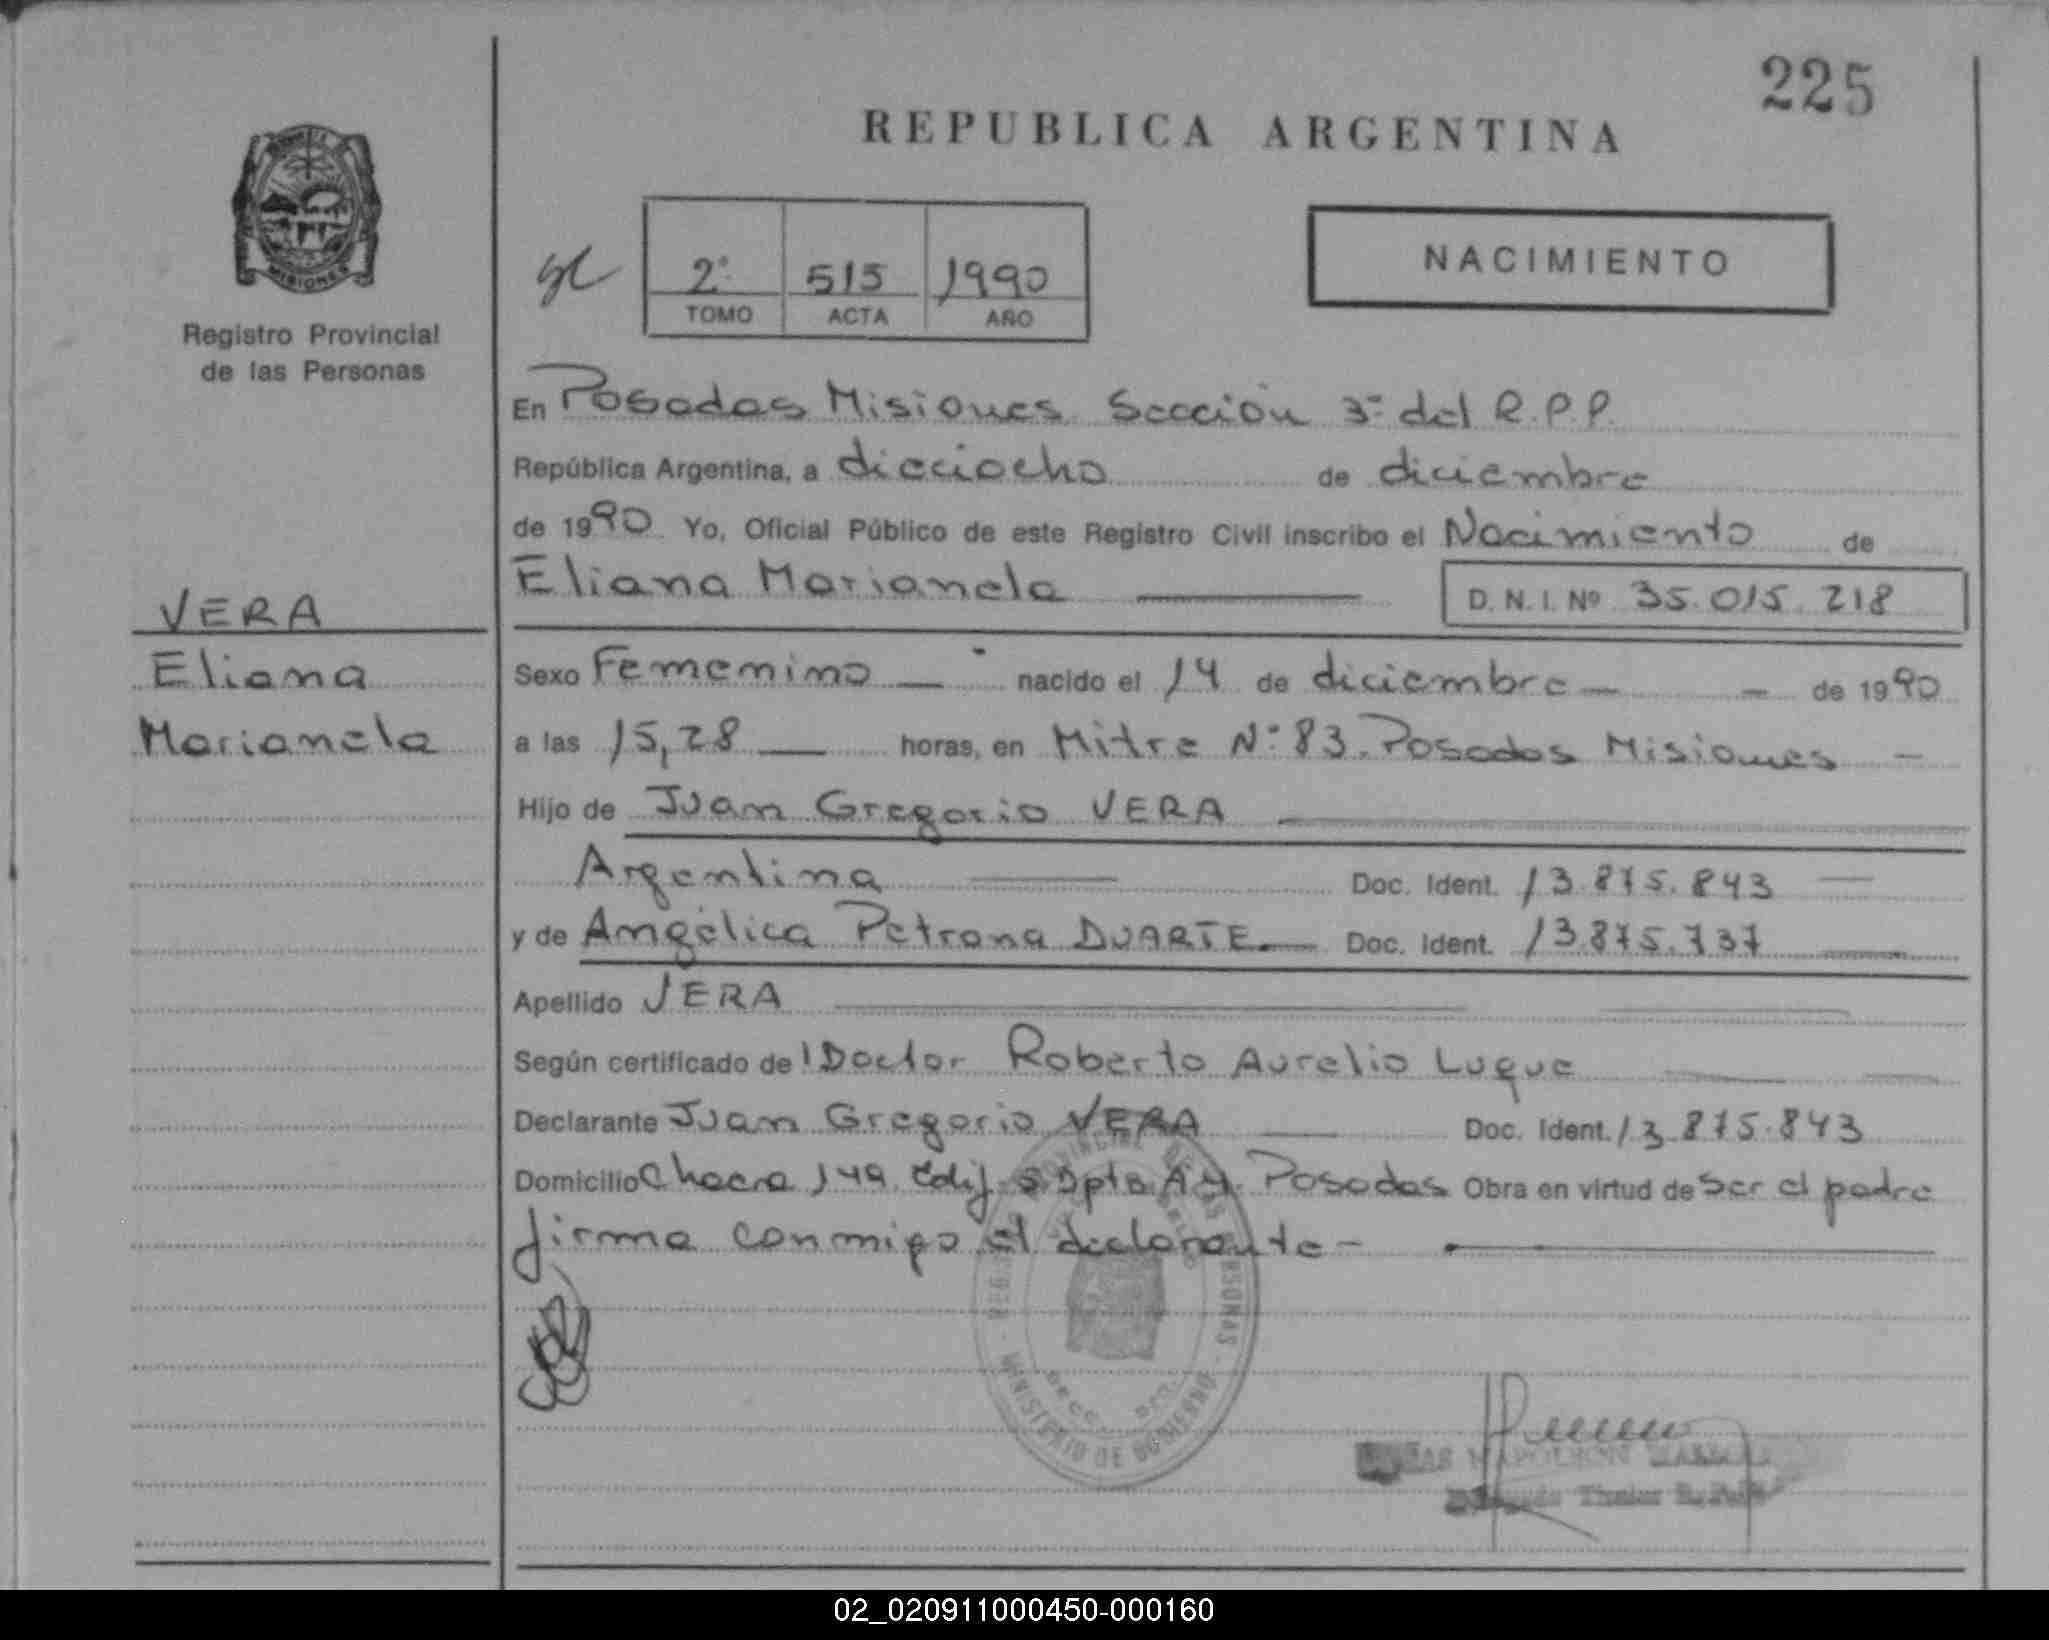 225
REPUBLICA ARGENTINA
MISIONES
Registro Provincial
de las Personas
2º 515 1990
TOMO ACTA AÑO
NACIMIENTO
En Posadas Misiones Sección 3º del R.P.P.
República Argentina, a dieciocho de diciembre
de 1990 Yo, Oficial Público de este Registro Civil inscribo el Nacimiento de
Eliana Marianela D.N.I. Nº 35.015.218
VERA
Eliana
Marianela
Sexo Femenino nacido el 14 de diciembre de 1990
a las 15,28 horas, en Mitre Nº 83. Posadas Misiones
Hijo de Juan Gregorio VERA
Argentina Doc. Ident. 13.875.843
y de Angélica Petrona DUARTE Doc. Ident. 13.875.737
Apellido VERA
Según certificado de l Doctor Roberto Aurelio Luque
Declarante Juan Gregorio VERA Doc. Ident. 13.875.843
Domicilio Chacra 149 Edif. Dpto A4. Posadas Obra en virtud de ser el padre
firma conmigo el declarante -
MINISTERIO DE GOBIERNO
NAPOLEON
02_020911000450-000160